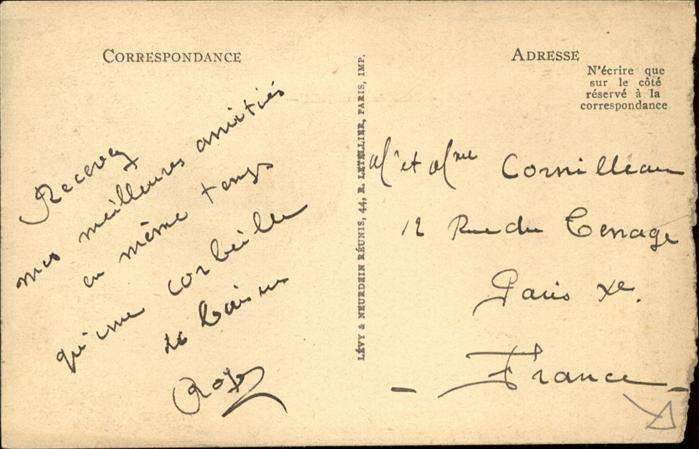 CORRESPONDANCE
Recevez
mes meilleures amitiés
en même temps
qu'une corbeille
de baisers
ADRESSE
N'écrire que
sur le côté
réservé à la
correspondance
LÉVY & NEURDEIN RÉUNIS, 44, R. LETELLIER, PARIS, IMP.
Mr et Mme Cornilleau
12 Rue du Tenage
Paris Xe.
France